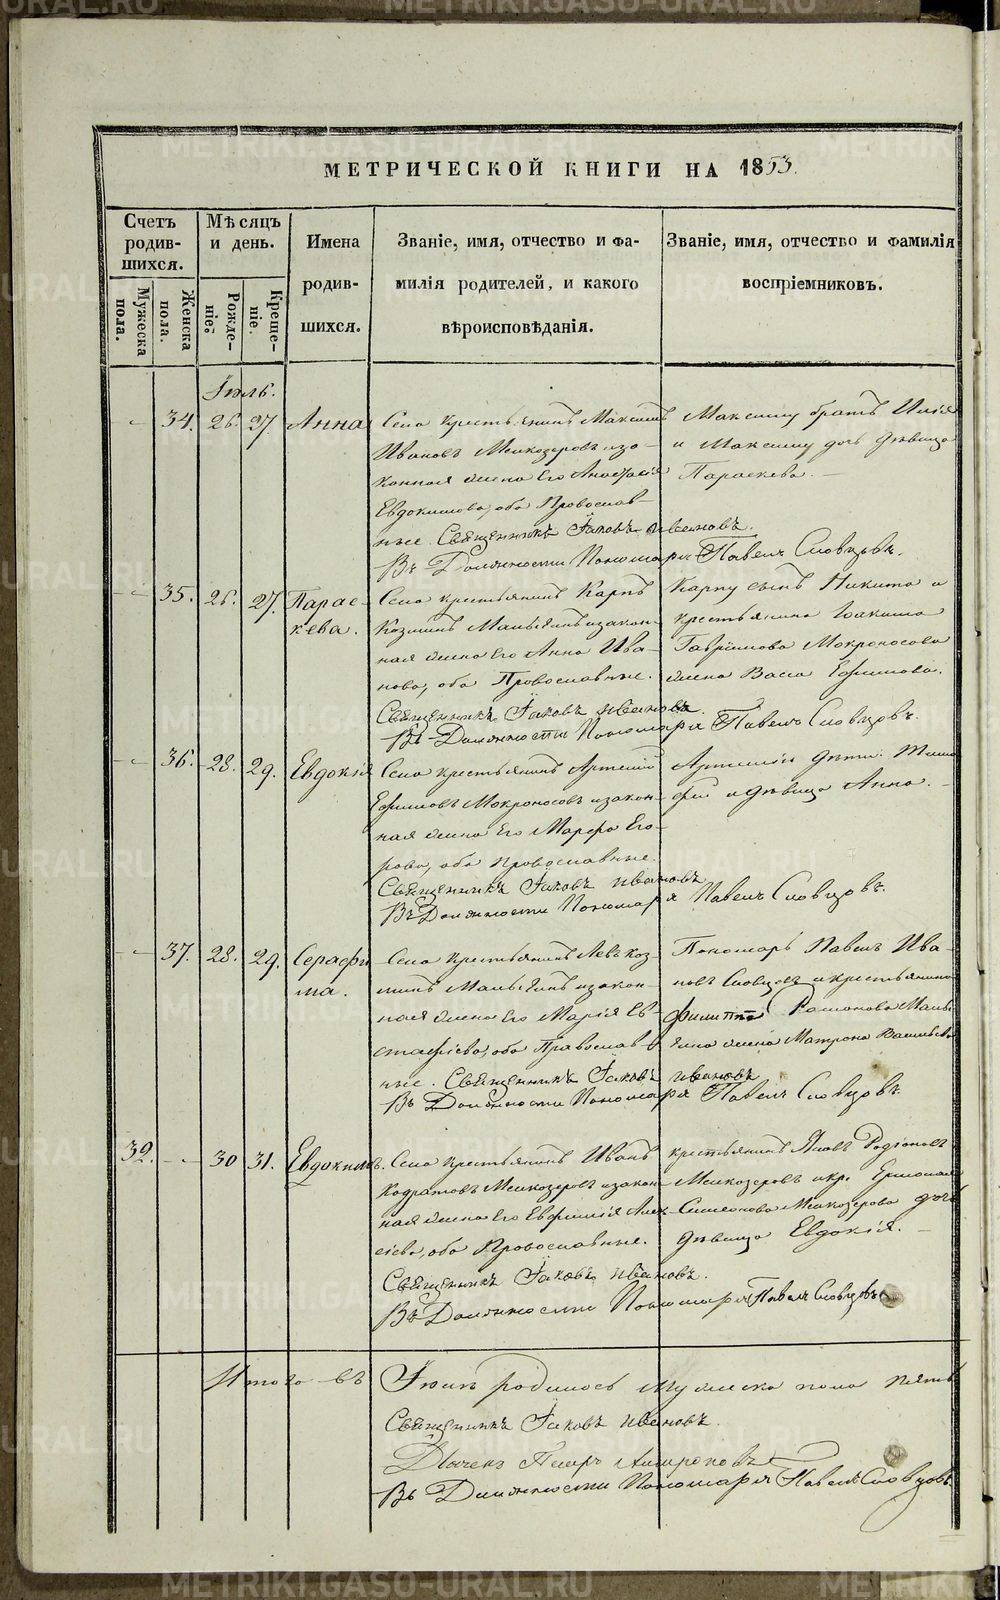 МЕТРИЧЕСКОЙ КНИГИ НА 1853.
Счетъ родив-шихся.
Мѣсяцъ и день.
Имена родив-шихся.
Званіе, имя, отчество и фа-
милія родителей, и какого
вѣроисповѣданія.
Званіе, имя, отчество и фамилія
воспріемниковъ.
Мужеска пола.
Женска пола.
Рожде-ніе.
Креще-ніе.
Іюль.
34. 26. 27. Анна
Села крестьянинъ Максимъ
Ивановъ Мелкозеровъ изо-
конная жена его Анастасія
Евдокимова, оба Православ-
ные. Священникъ Іаковъ Ивановъ.
Въ Должности Пономаря Павелъ Словцовъ.
Максиму братъ Илія
и Максиму дочь дѣвица
Параскева.
35. 26. 27. Парас-
кева.
Села крестьянинъ Карпъ
Козминъ изакон-
ная жена его Анна Ива-
нова, оба Православные.
Священникъ Іаковъ Ивановъ.
Въ Должности Пономаря Павелъ Словцовъ.
Карпу сынъ Никита и
крестьянина Іакима
Гаврілова Мокроносова
жена Васса Ефимова.
36. 28. 29. Евдокія
Села крестьянинъ Артемій
Ефимовъ Мокроносовъ изакон-
ная жена его Марфа Его-
рова, оба православные.
Священникъ Іаковъ Ивановъ
Въ Должности Пономаря Павелъ Словцовъ.
Артемія дѣти: Тимо
фей и дѣвица Анна.
37. 28. 29. Серафи
ма.
Села крестьянинъ Левъ Коз-
минъ изакон-
ная жена его Марія Ев-
стафіева, оба Православ-
ные. Священникъ Іаковъ Ивановъ
Въ Должности Пономаря Павелъ Словцовъ.
Пономарь Павелъ Ива-
новъ Словцовъ и крестьянина
Филиппа Рамонова
жена Матрона Васильева
32. 30 31. Евдокимъ.
Села крестьянинъ Иванъ
Кодратовъ Мелкозеровъ изакон-
ная жена его Евфимія Алек-
сіева, оба Православные.
Священникъ Іаковъ Ивановъ.
Въ Должности Пономаря Павелъ Словцовъ
крестьянинъ Яковъ Родіоновъ
Мелкозеровъ и кр. Ермолая
Симеонова Мелкозерова дочь
дѣвица Евдокія.
Итого въ Іюлѣ родилось мужеска пола пять
Священникъ Іаковъ Ивановъ.
Дьячекъ Петръ
Въ Должности Пономаря Павелъ Словцовъ.
METRIKI.GASO-URAL.RU